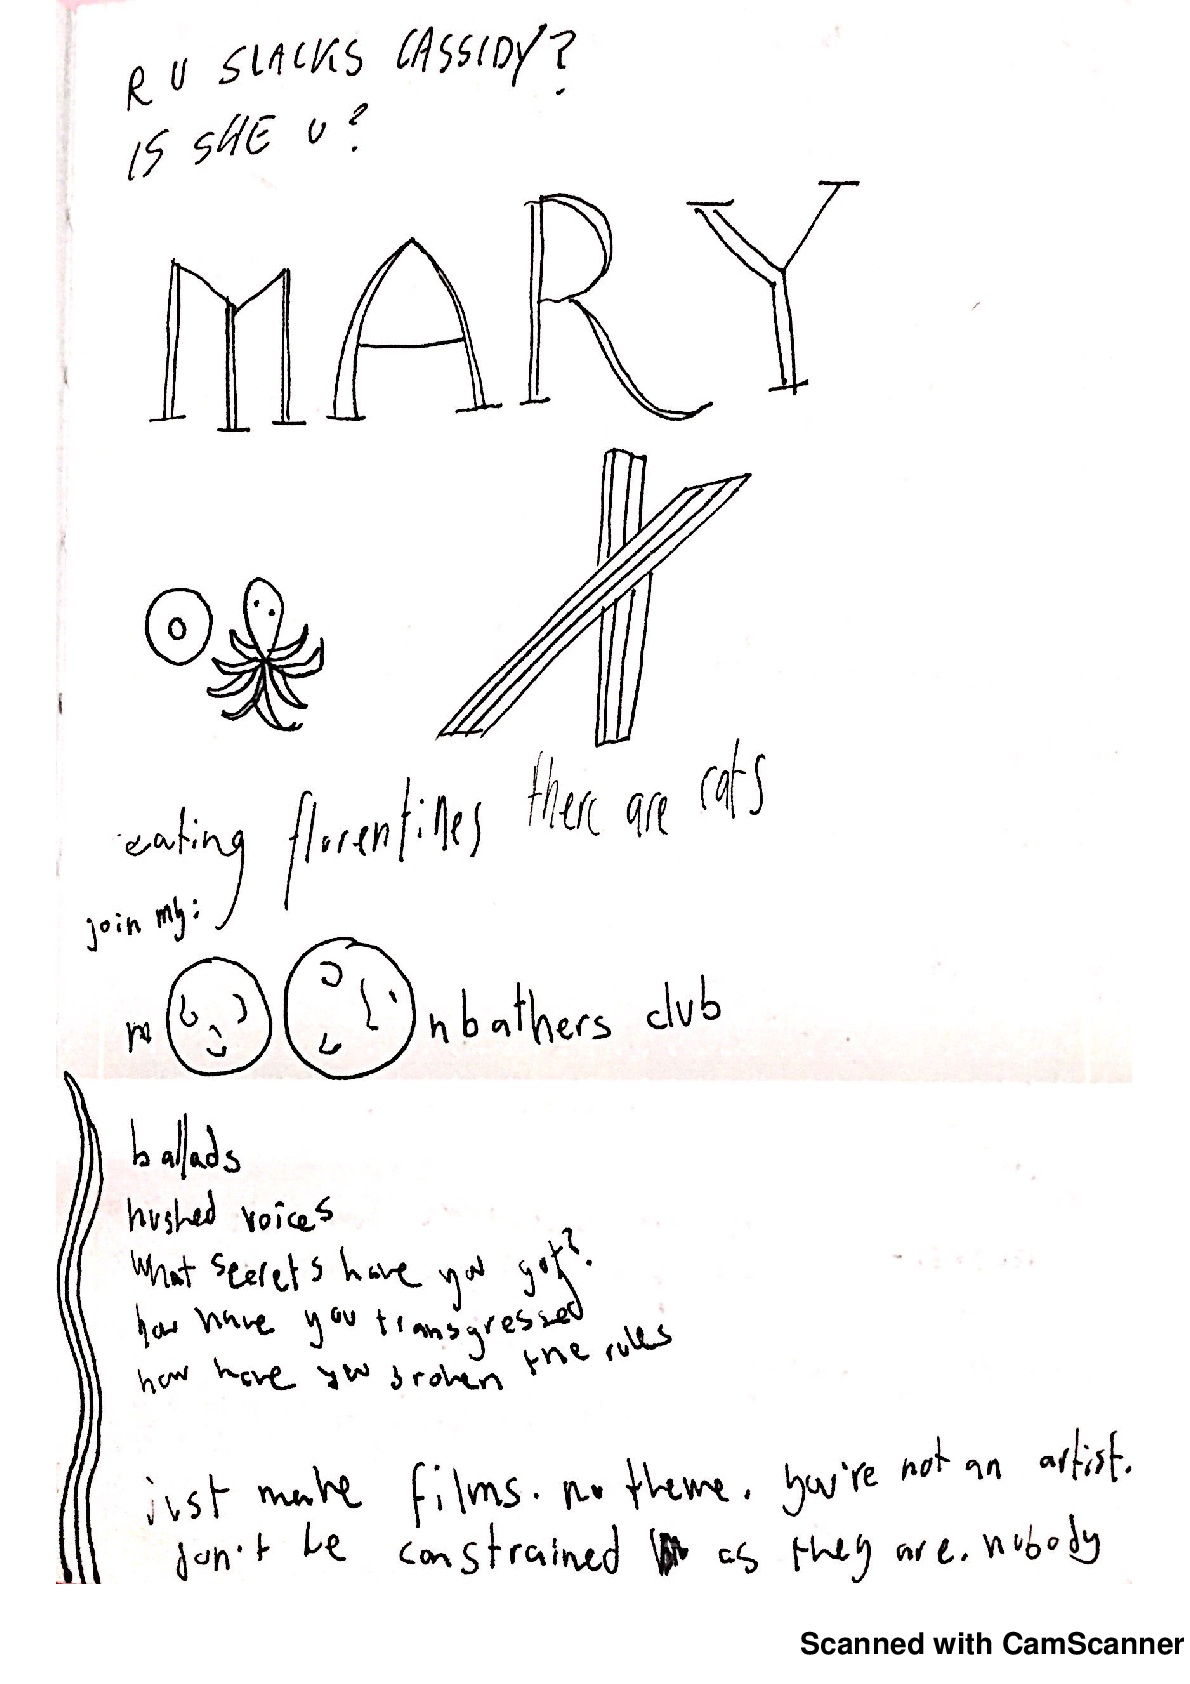 R U SLACKS CASSIDY?
IS SHE U?
MARY
eating florentines there are rats
join my:
moonbathers club
ballads
hushed voices
what secrets have you got?
how have you transgressed
how have you broken the rules
just make films. no theme. you're not an artist.
don't be constrained as they are. nobody
Scanned with CamScanner